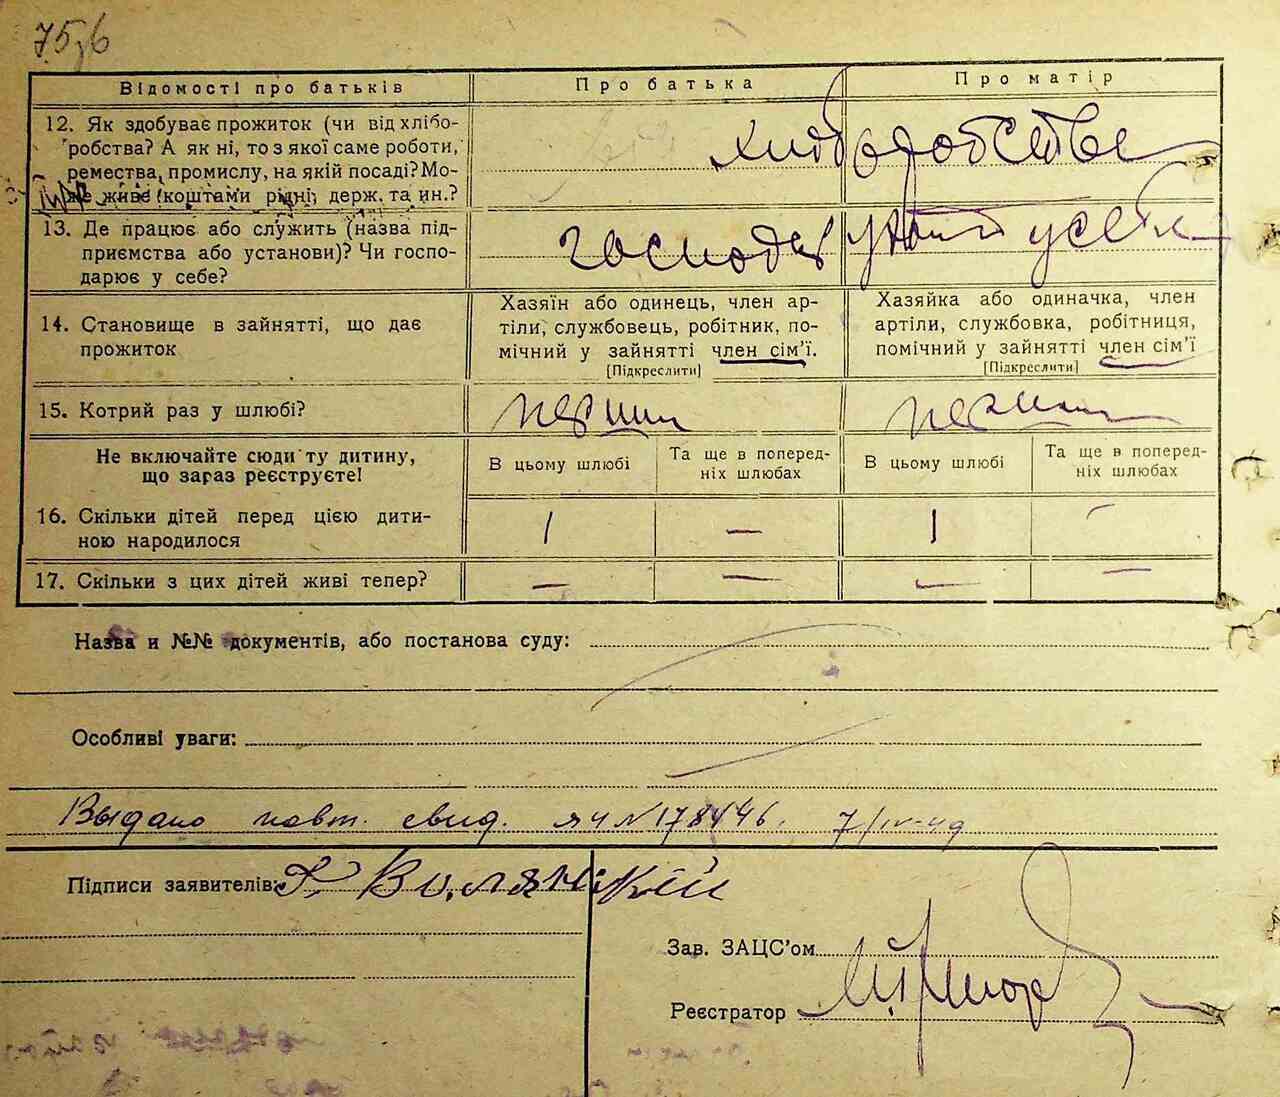 75зв
Відомості про батьків
Про батька
Про матір
12. Як здобуває прожиток (чи від хлібо-
робства? А як ні, то з якої саме роботи,
ремества, промислу, на якій посаді? Мо-
же живе коштами рідні, держ. та ин.?
хліборобство
13. Де працює або служить (назва під-
приємства або установи)? Чи госпо-
дарює у себе?
14. Становище в зайнятті, що дає
прожиток
Хазяїн або одинець, член ар-
тіли, службовець, робітник, по-
мічний у зайнятті член сім'ї.
[Підкреслити]
Хазяйка або одиначка, член
артіли, службовка, робітниця,
помічний у зайнятті член сім'ї
[Підкреслити]
15. Котрий раз у шлюбі?
перший
Не включайте сюди ту дитину,
що зараз реєструєте!
В цьому шлюбі
Та ще в поперед-
ніх шлюбах
В цьому шлюбі
Та ще в поперед-
ніх шлюбах
16. Скільки дітей перед цією дити-
ною народилося
1
—
1
—
17. Скільки з цих дітей живі тепер?
—
—
—
—
Назва и №№ документів, або постанова суду:
Особливі уваги:
Выдано повт. свид. ЯЧ №178446. 7/IV-49
Підписи заявителів:
Зав. ЗАЦС'ом
Реєстратор